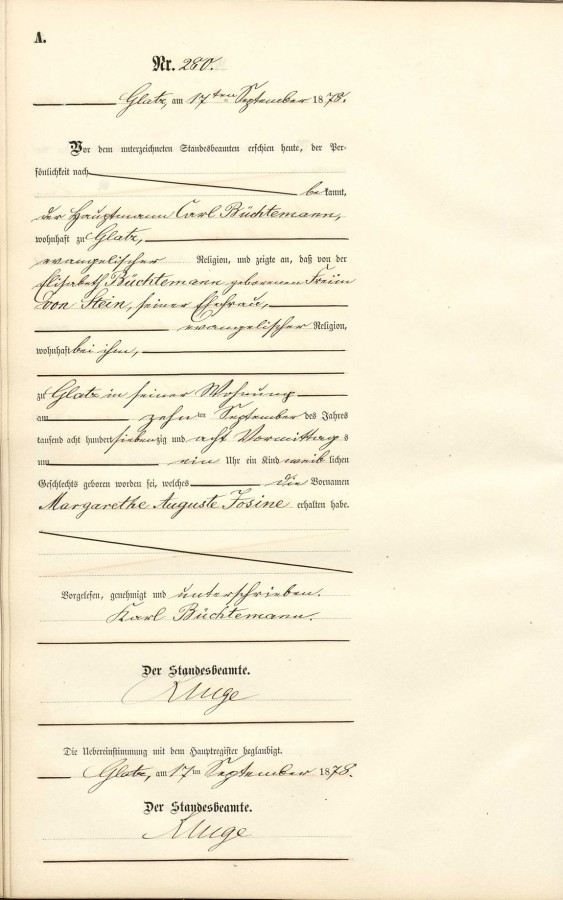 A.
Nr. 280.
Glatz, am 17ten September 1878.
Vor dem unterzeichneten Standesbeamten erschien heute, der Per-
sönlichkeit nach
bekannt,
der Hauptmann Carl Büchtemann,
wohnhaft zu Glatz,
evangelischer Religion, und zeigte an, daß von der
Elisabeth Büchtemann geborenen Freiin
von Stein, seiner Ehefrau,
evangelischer Religion,
wohnhaft bei ihm,
zu Glatz in seiner Wohnung
am zehnten September des Jahres
tausend acht hundert siebenzig und acht Vormittags
um ein Uhr ein Kind weiblichen
Geschlechts geboren worden sei, welches die Vornamen
Margarethe Auguste Josine erhalten habe.
Vorgelesen, genehmigt und unterschrieben.
Karl Büchtemann.
Der Standesbeamte.
Kluge
Die Uebereinstimmung mit dem Hauptregister beglaubigt.
Glatz, am 17ten September 1878.
Der Standesbeamte.
Kluge